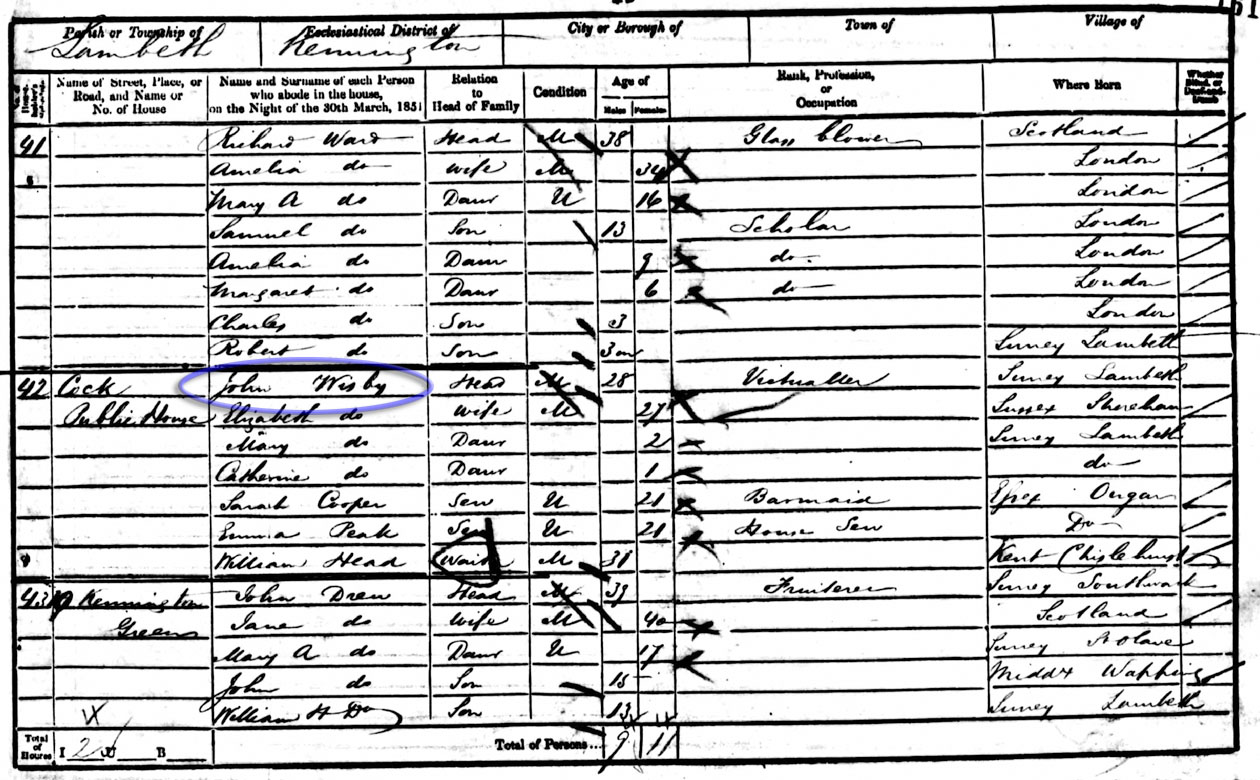 Parish or Township of Ecclesiastical District of City or Borough of Town of Village of
Lambeth Kennington
Name of Street, Place, or Road, and Name or No. of House Name and Surname of each Person who abode in the house, on the Night of the 30th March, 1851 Relation to Head of Family Condition Age of Males Females Rank, Profession, or Occupation Where Born Whether Blind, or Deaf-and-Dumb
41 Richard Ward Head M 38 Glass blower Scotland
Amelia do Wife M 34 London
Mary A do Daur U 16 London
Samuel do Son 13 Scholar London
Amelia do Daur 9 do London
Margaret do Daur 6 do London
Charles do Son 3 London
Robert do Son 3 m Surrey Lambeth
42 Cock John Wisby Head M 28 Victualler Surrey Lambeth
Public House Elizabeth do Wife M 27 Sussex Shoreham
Mary do Daur 2 Surrey Lambeth
Catherine do Daur 1 do
Sarah Cooper Serv U 21 Barmaid Essex Ongar
Emma Peak Serv U 21 House Serv Do
William Head M 31 Kent Chislehurst
43 Kennington John Drew Head M 39 Fruiterer Surrey Southwark
Green Jane do Wife M 40 Scotland
Mary A do Daur U 17 Surrey St Olave
John do Son 15 Middx Wapping
William H Do Son 13 Surrey Lambeth
Total of Houses I 2 U B Total of Persons... 9 11